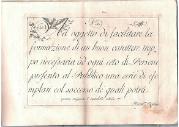 Ad oggetto di facilitare la
formazione di un buon carattere, trop-
po necessario ad ogni ceto di Persone
presento al Pubblico una serie di ese-
mplari col soccorso de' quali potrà